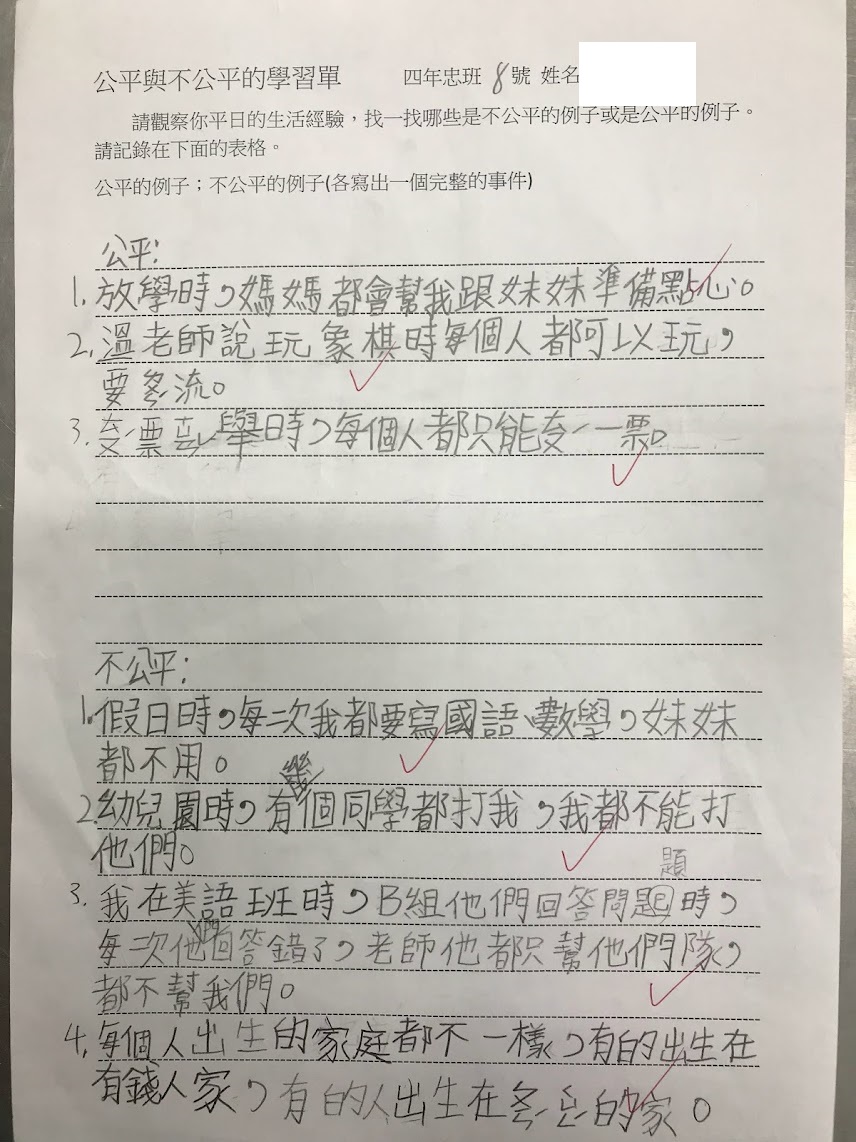 公平與不公平的學習單 四年忠班 8號 姓名
請觀察你平日的生活經驗，找一找哪些是不公平的例子或是公平的例子。
請記錄在下面的表格。
公平的例子；不公平的例子(各寫出一個完整的事件)
公平：
1. 放學時，媽媽都會幫我跟妹妹準備點心。
2. 溫老師說玩象棋時每個人都可以玩，
要流。
3. 票舉時，每個人都只能一票。
不公平：
1. 假日時，每次我都要寫國語、數學，妹妹
都不用。
2. 幼兒園時，有幾個同學都打我，我都不能打
他們。
題
3. 我在美語班時，B組他們回答問題時，
每次他們回答錯了，老師他都只幫他們隊，
都不幫我們。
4. 每個人出生的家庭都不一樣，有的出生在
有錢人家，有的人出生在的家。